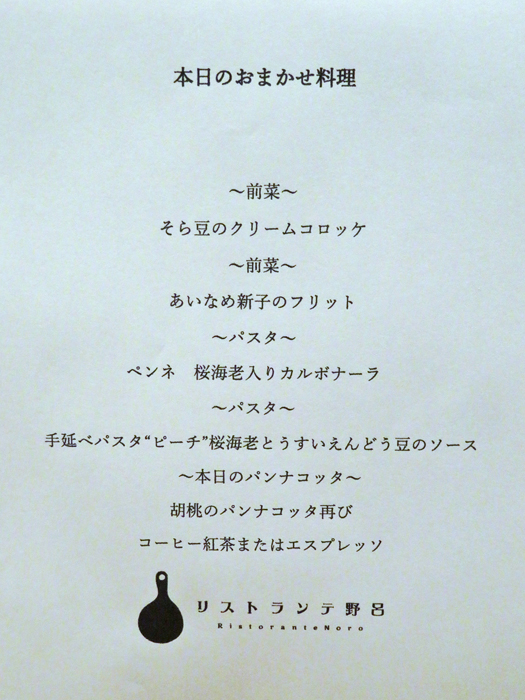 本日のおまかせ料理
〜前菜〜
そら豆のクリームコロッケ
〜前菜〜
あいなめ新子のフリット
〜パスタ〜
ペンネ　桜海老入りカルボナーラ
〜パスタ〜
手延べパスタ“ピーチ”桜海老とうすいえんどう豆のソース
〜本日のパンナコッタ〜
胡桃のパンナコッタ再び
コーヒー紅茶またはエスプレッソ
リストランテ野呂
RistoranteNoro